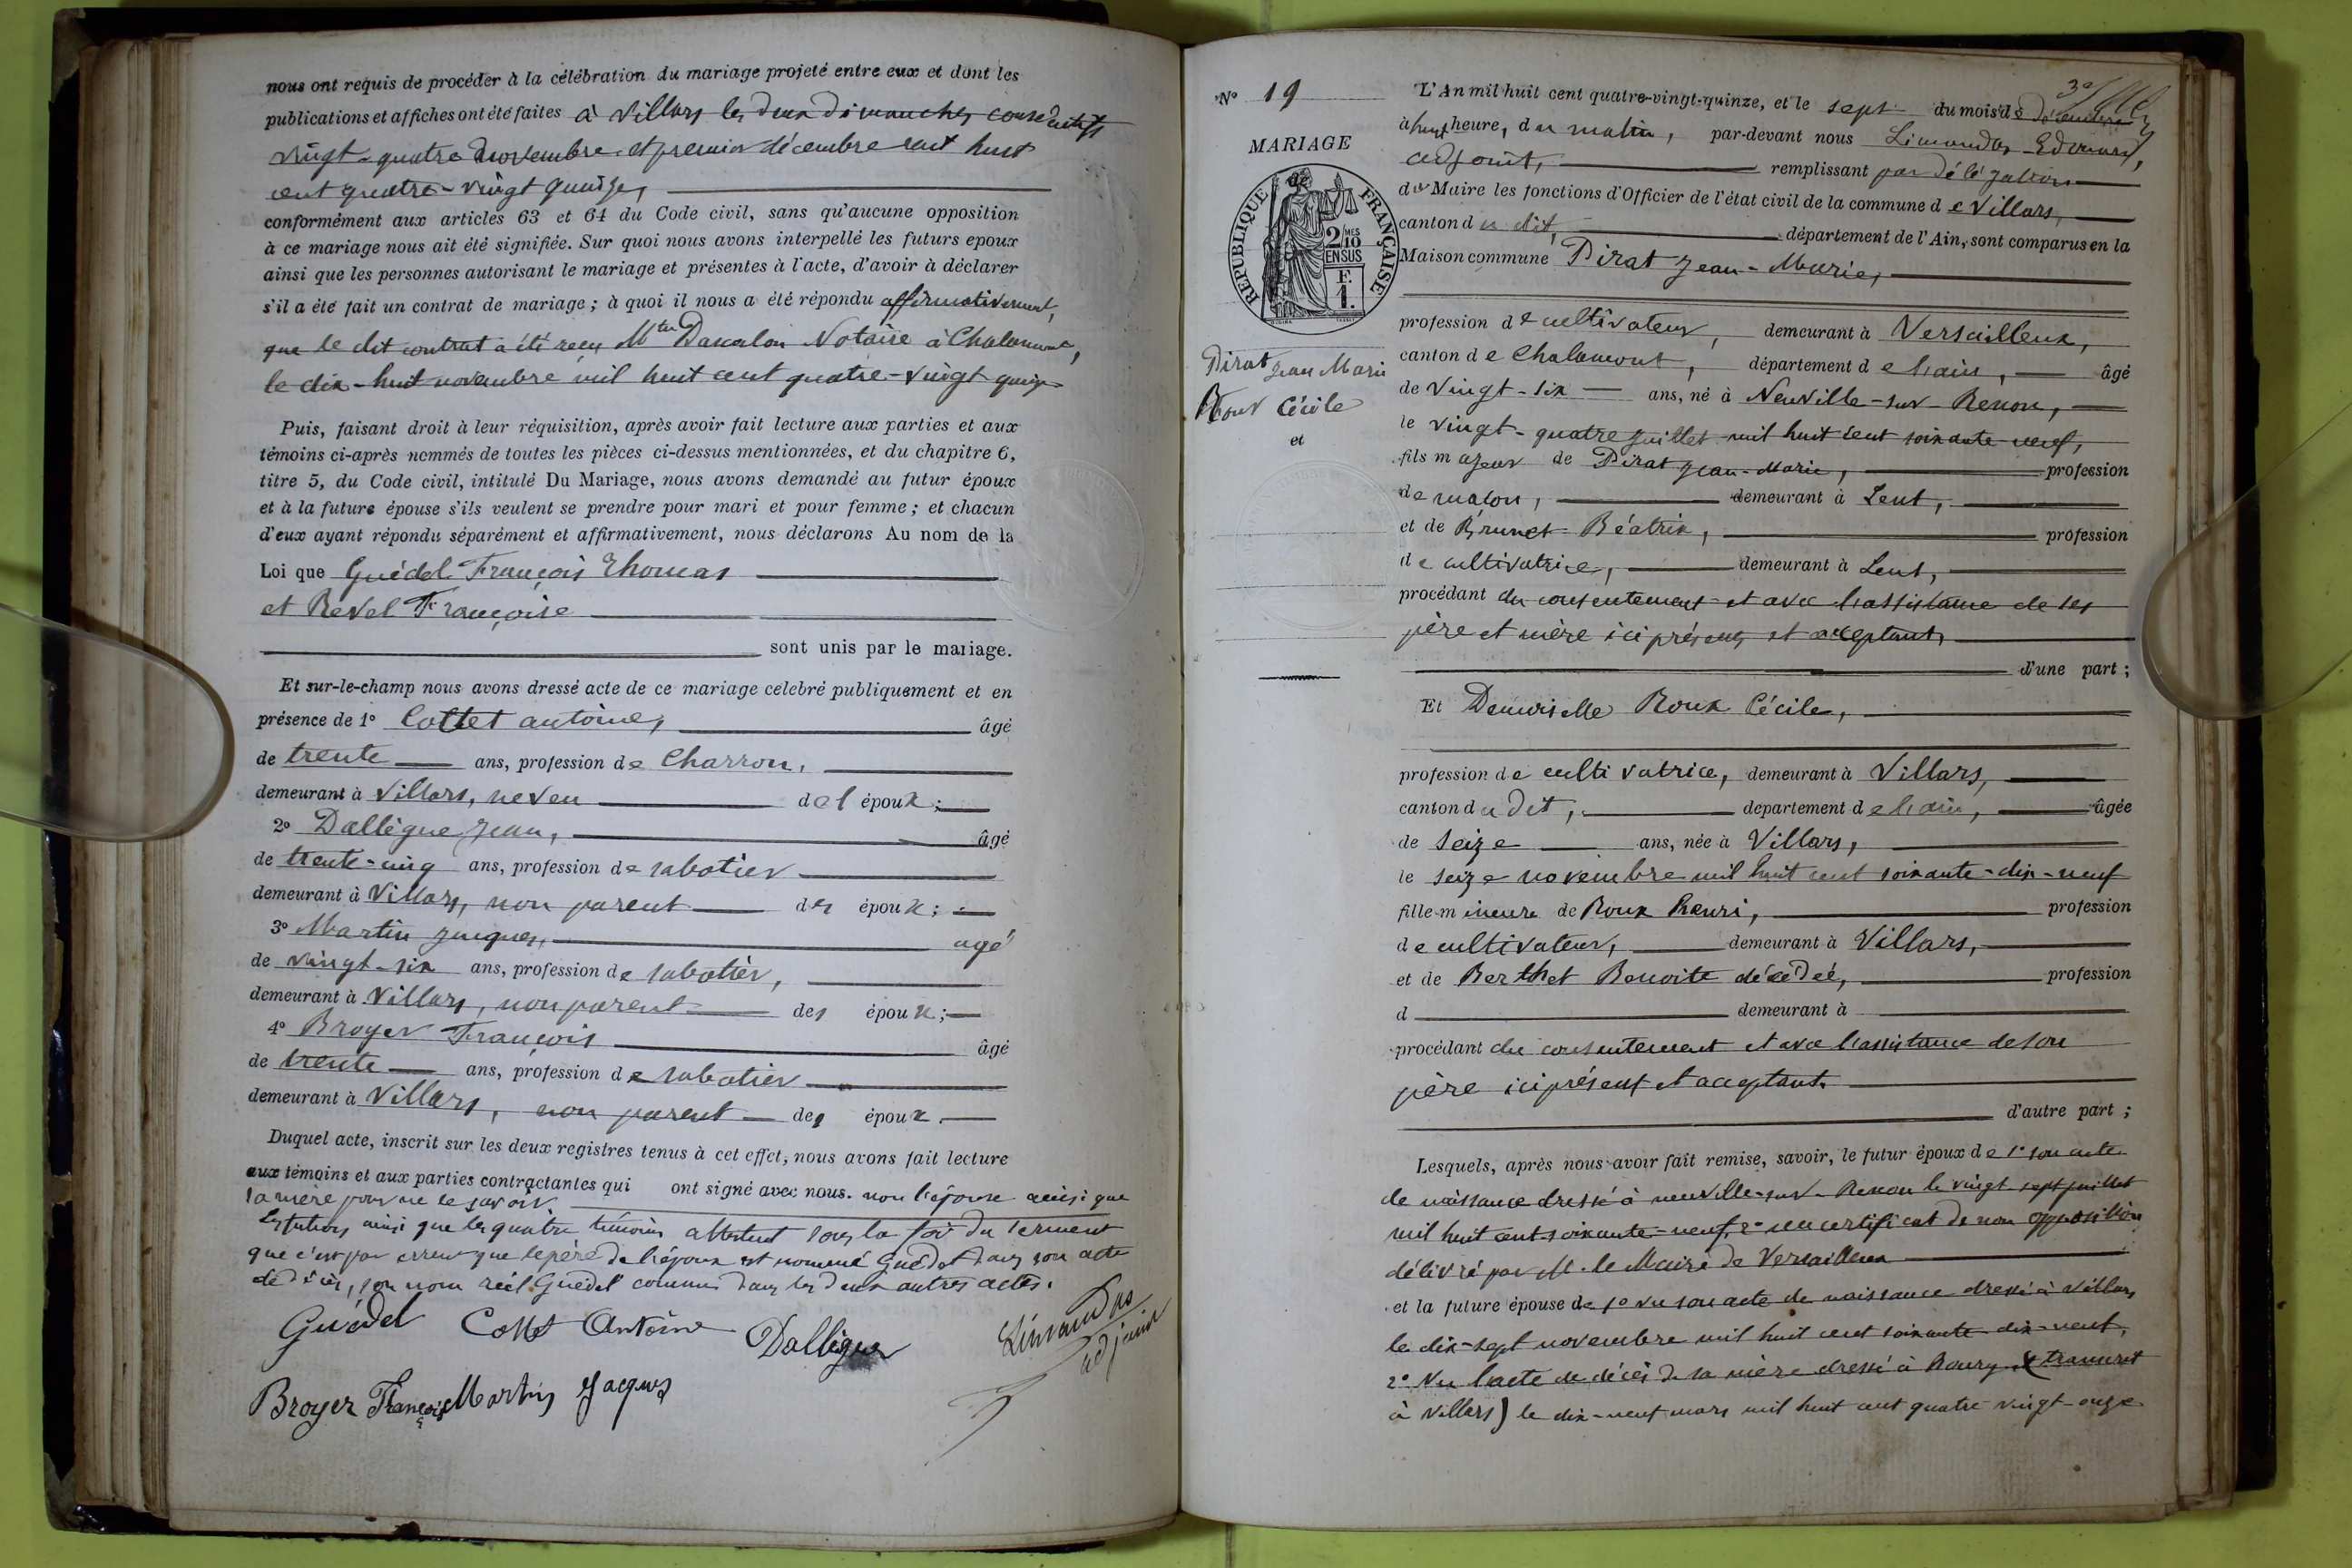 nous ont requis de procéder à la célébration du mariage projeté entre eux et dont les
publications et affiches ont été faites à Villars les deux dimanches consécutifs
vingt-quatre novembre et premier décembre mil huit
cent quatre-vingt quinze,
conformément aux articles 63 et 64 du Code civil, sans qu'aucune opposition
à ce mariage nous ait été signifiée. Sur quoi nous avons interpellé les futurs epoux
ainsi que les personnes autorisant le mariage et présentes à l'acte, d'avoir à déclarer
s'il a été fait un contrat de mariage ; à quoi il nous a été répondu affirmativement,
que le dit contrat a été reçu Notaire à Chalamont,
le dix-huit novembre mil huit cent quatre-vingt quinze
Puis, faisant droit à leur réquisition, après avoir fait lecture aux parties et aux
témoins ci-après nommés de toutes les pièces ci-dessus mentionnées, et du chapitre 6,
titre 5, du Code civil, intitulé Du Mariage, nous avons demandé au futur époux
et à la future épouse s'ils veulent se prendre pour mari et pour femme ; et chacun
d'eux ayant répondu séparément et affirmativement, nous déclarons Au nom de la
Loi que Guédel François Thomas
et Revel Françoise
sont unis par le mariage.
Et sur-le-champ nous avons dressé acte de ce mariage celebré publiquement et en
présence de 1° Collet antoine, âgé
de trente ans, profession de Charron,
demeurant à Villars, neveu de l époux ;
2° Dallègue Jean, âgé
de trente-cinq ans, profession de sabotier
demeurant à Villars, non parent des époux ;
3° Martin Jacques, agé
de vingt-six ans, profession de sabotier,
demeurant à Villars, non parent des époux ;
4° Broyer François âgé
de trente ans, profession de sabotier
demeurant à Villars, non parent des époux.
Duquel acte, inscrit sur les deux registres tenus à cet effet, nous avons fait lecture
aux témoins et aux parties contractantes qui ont signé avec nous. non l'épouse ainsi que
sa mère pour ne le savoir.
Les futurs ainsi que les quatre témoins attestent sous la foi du serment
que c'est par erreur que le père de l'époux est nommé Guédet dans son acte
de décès, son nom réel Guédel comme dans les deux autres actes.
Guédel Collet Antoine Dallègue Limandas
adjoint
Broyer François Martin Jacques
N° 19
MARIAGE
de
RÉPUBLIQUE FRANÇAISE
2 MES
10
EN SUS
F.
1.
Pirat Jean Marie
Roux Cécile
et
L'An mil huit cent quatre-vingt-quinze, et le sept du mois de décembre
à huit heure, du matin, par-devant nous Limandas Edouard,
adjoint, remplissant par délégation
du Maire les fonctions d'Officier de l'état civil de la commune de Villars,
canton du dit, département de l'Ain, sont comparus en la
Maison commune Pirat Jean-Marie,
profession de cultivateur, demeurant à Versailleux,
canton de Chalamont, département de l'ain, âgé
de vingt-six ans, né à Neuville-sur-Renon,
le vingt-quatre juillet mil huit cent soixante-neuf,
fils majeur de Pirat Jean-Marie, profession
de maçon, demeurant à Lent,
et de Brunet Béatrix, profession
de cultivatrice, demeurant à Lent,
procédant du consentement et avec l'assistance de ses
père et mère ici présents et acceptant,
d'une part ;
Et Demoiselle Roux Cécile,
profession de cultivatrice, demeurant à Villars,
canton du dit, departement de l'ain, âgée
de seize ans, née à Villars,
le seize novembre mil huit cent soixante-dix-neuf
fille mineure de Roux henri, profession
de cultivateur, demeurant à Villars,
et de Berthet Benoite décédée, profession
d demeurant à
procédant du consentement et avec l'assistance de son
père ici présent et acceptant.
d'autre part ;
Lesquels, après nous avoir fait remise, savoir, le futur époux de 1° son acte
de naissance dressé à neuville-sur-Renon le vingt-sept juillet
mil huit cent soixante-neuf, 2° un certificat de non opposition
délivré par M. le Maire de Versailleux
et la future épouse de 1° vu son acte de naissance dressé à Villars
le dix-sept novembre mil huit cent soixante-dix-neuf,
2° Vu l'acte de décès de sa mère dressé à Bourg (transcrit
à Villars) le dix-neuf mars mil huit cent quatre-vingt-onze